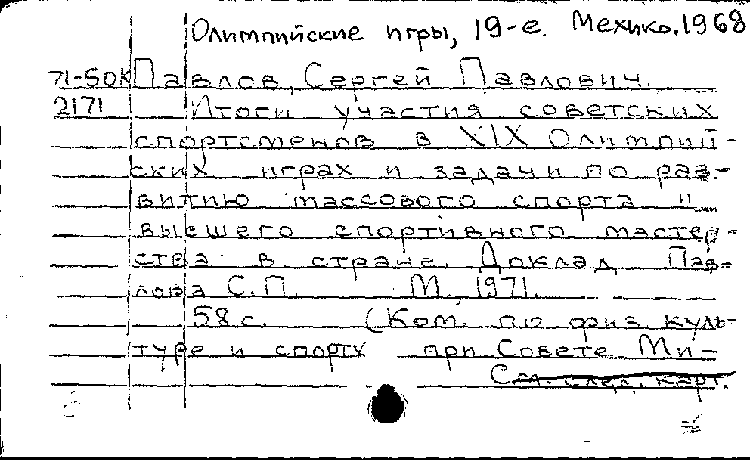 Олимпийские игры, 19-е. Мехико. 1968
71-50К Павлов, Сергей Павлович.
2171 Итоги участия советских
спортсменов в XIX Олимпий-
ских играх и задачи по раз-
витию массового спорта и
высшего спортивного мастер-
ства в стране. Доклад Пав-
лова С.П. М., 1971.
58 с. (Ком. по физ. куль-
туре и спорту при Совете Ми-
См. след. карт.